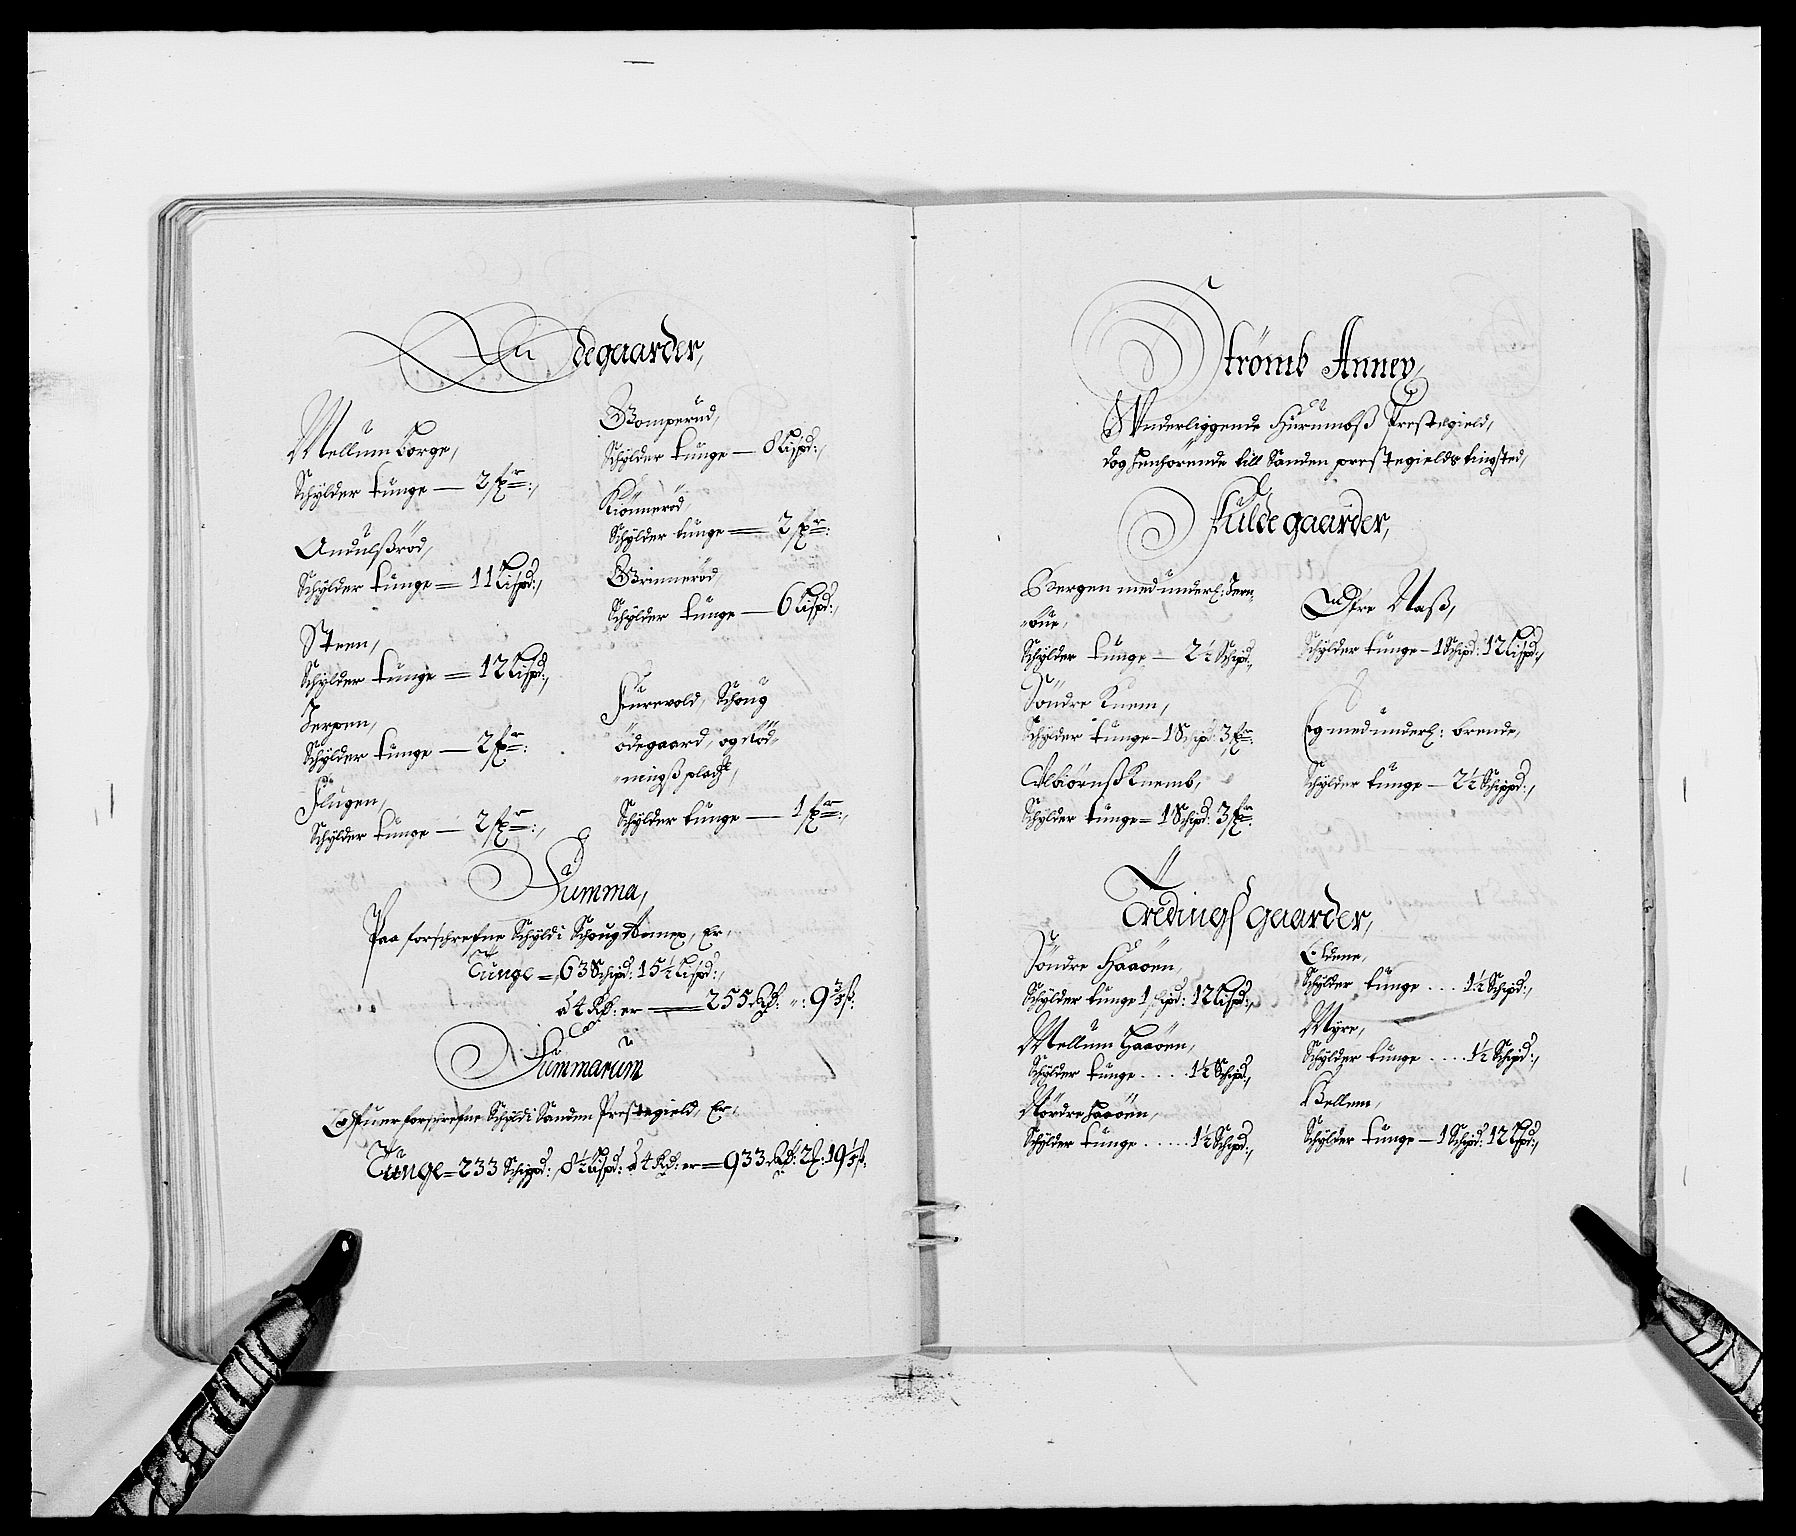 Ødegaarder,
Mellum borge,
Schÿlder tunge — 2 fr:,
Andulßrød,
Schÿlder tunge = 11 Lispd:,
Steen,
Schÿlder tunge = 12 Lispd:,
Jerpen,
Schÿlder tunge — 2 fr:
Flugen,
Schÿlder tunge — 2 fr:,
Gomperud,
Schÿlder tunge — 8 Lispd:,
Kiønnerød,
Schÿlder tunge — 2 fr:
Grinnerød,
Schÿlder tunge — 6 Lispd:,
Furuvold, Schoug
ødegaard, og Rød-
-ningß plads,
Schÿlder tunge — 1 fr:,
Summa,
Paa forschrefne Schÿld i Schougbÿmen, Er,
Tunge = 63 Schipd: 15½ Lispd:,
à 4 Rd: er — 255 Rd: „: 9⅗ s:
Summarum
Ofuer forschrefne Schÿld i Sanden Prestegield, Er,
Tunge = 233 Schippd: 8½ Lispd: à 4 Rd: er = 933 Rd: 2 : 19⅕ s:
Strömb Annex,
Wnderliggende Hurumbß Prestegield,
dog henhørende till Sanden prestegields tingsted,
Fulde gaarder,
Bergen med underl: Jern-
-bue,
Schÿlder tunge — 2½ Schipd:,
Söndre Knem,
Schÿlder tunge — 1 Schipd: 3 fr:
Schÿlder tunge = 1 Schipd: 3 fr:
Øfre Naß,
Schÿlder tunge — 1 Schipd: 12 Lispd:,
Eg med underl: brende,
Schÿlder tunge — 2½ Schippd:,
Tredings gaarder,
Söndre Haaöen,
Schÿlder tunge 1 Schipd: 12 Lispd:,
Mellum Haaöen,
Schÿlder tunge ..... 1½ Schipd:,
Nordre Haaöen,
Schÿlder tunge ...... 1½ Schipd:,
Ekene,
Schÿlder tunge .... 1½ Schipd:,
Myre,
Schÿlder tunge ..... 1½ Schipd:,
Bellem,
Schÿlder tunge — 1 Schipd: 12 Lspd:,